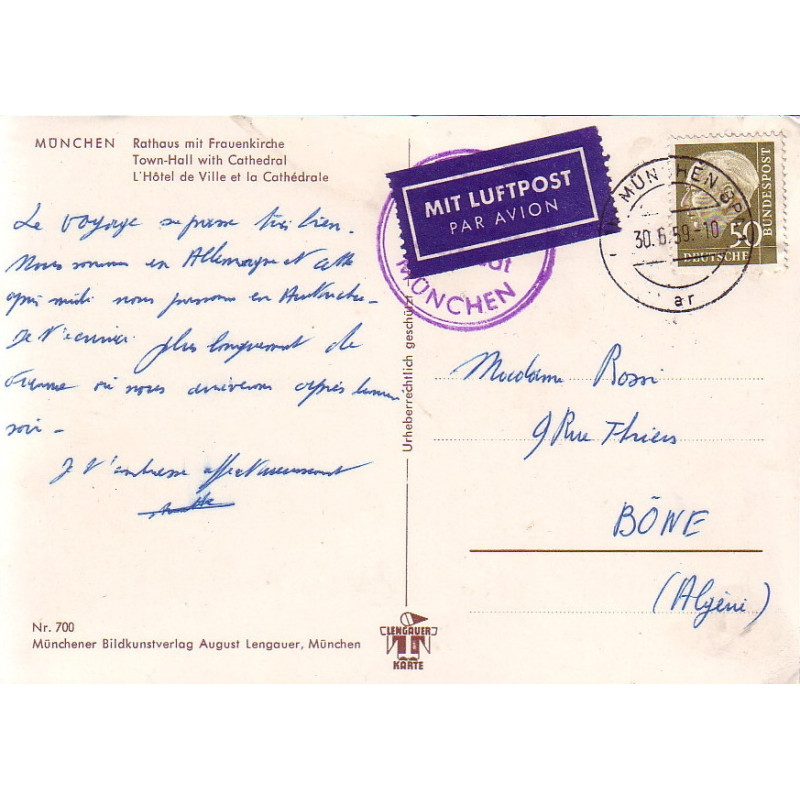 MÜNCHEN Rathaus mit Frauenkirche
Town-Hall with Cathedral
L'Hôtel de Ville et la Cathédrale
Le voyage se passe très bien.
Nous sommes en Allemagne et cette
après midi nous passons en Autriche.
Je t'écrirai plus longuement de
Vienne où nous arriverons après demain
soir.
Je t'embrasse affectueusement
Nr. 700
Münchener Bildkunstverlag August Lengauer, München
Urheberrechtlich geschützt
LENGAUER
KARTE
MIT LUFTPOST
PAR AVION
MÜNCHEN
MÜNCHEN
30.6.59.-10
ar
50
DEUTSCHE
BUNDESPOST
Madame Rossi
9 Rue Thiers
BÔNE
(Algérie)